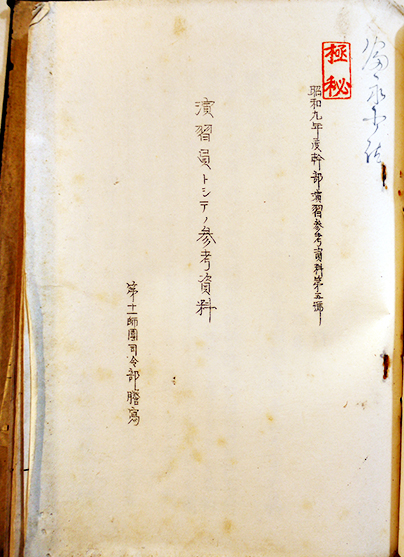 極秘
昭和九年度幹部演習参考資料第五號
演習員トシテノ参考資料
第十一師團司令部謄寫